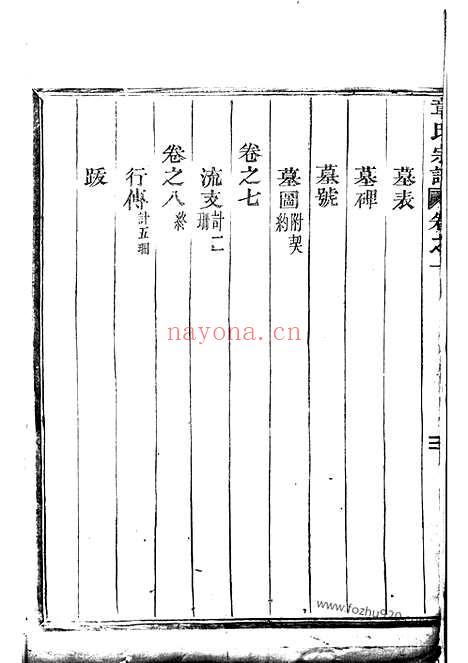 章氏宗譜 卷之一
墓表
墓碑
墓號
墓圖附契約
卷之七
流支計二珊
卷之八終
行傳計五珊
跋
nayona.cn
www.fozhu920.com